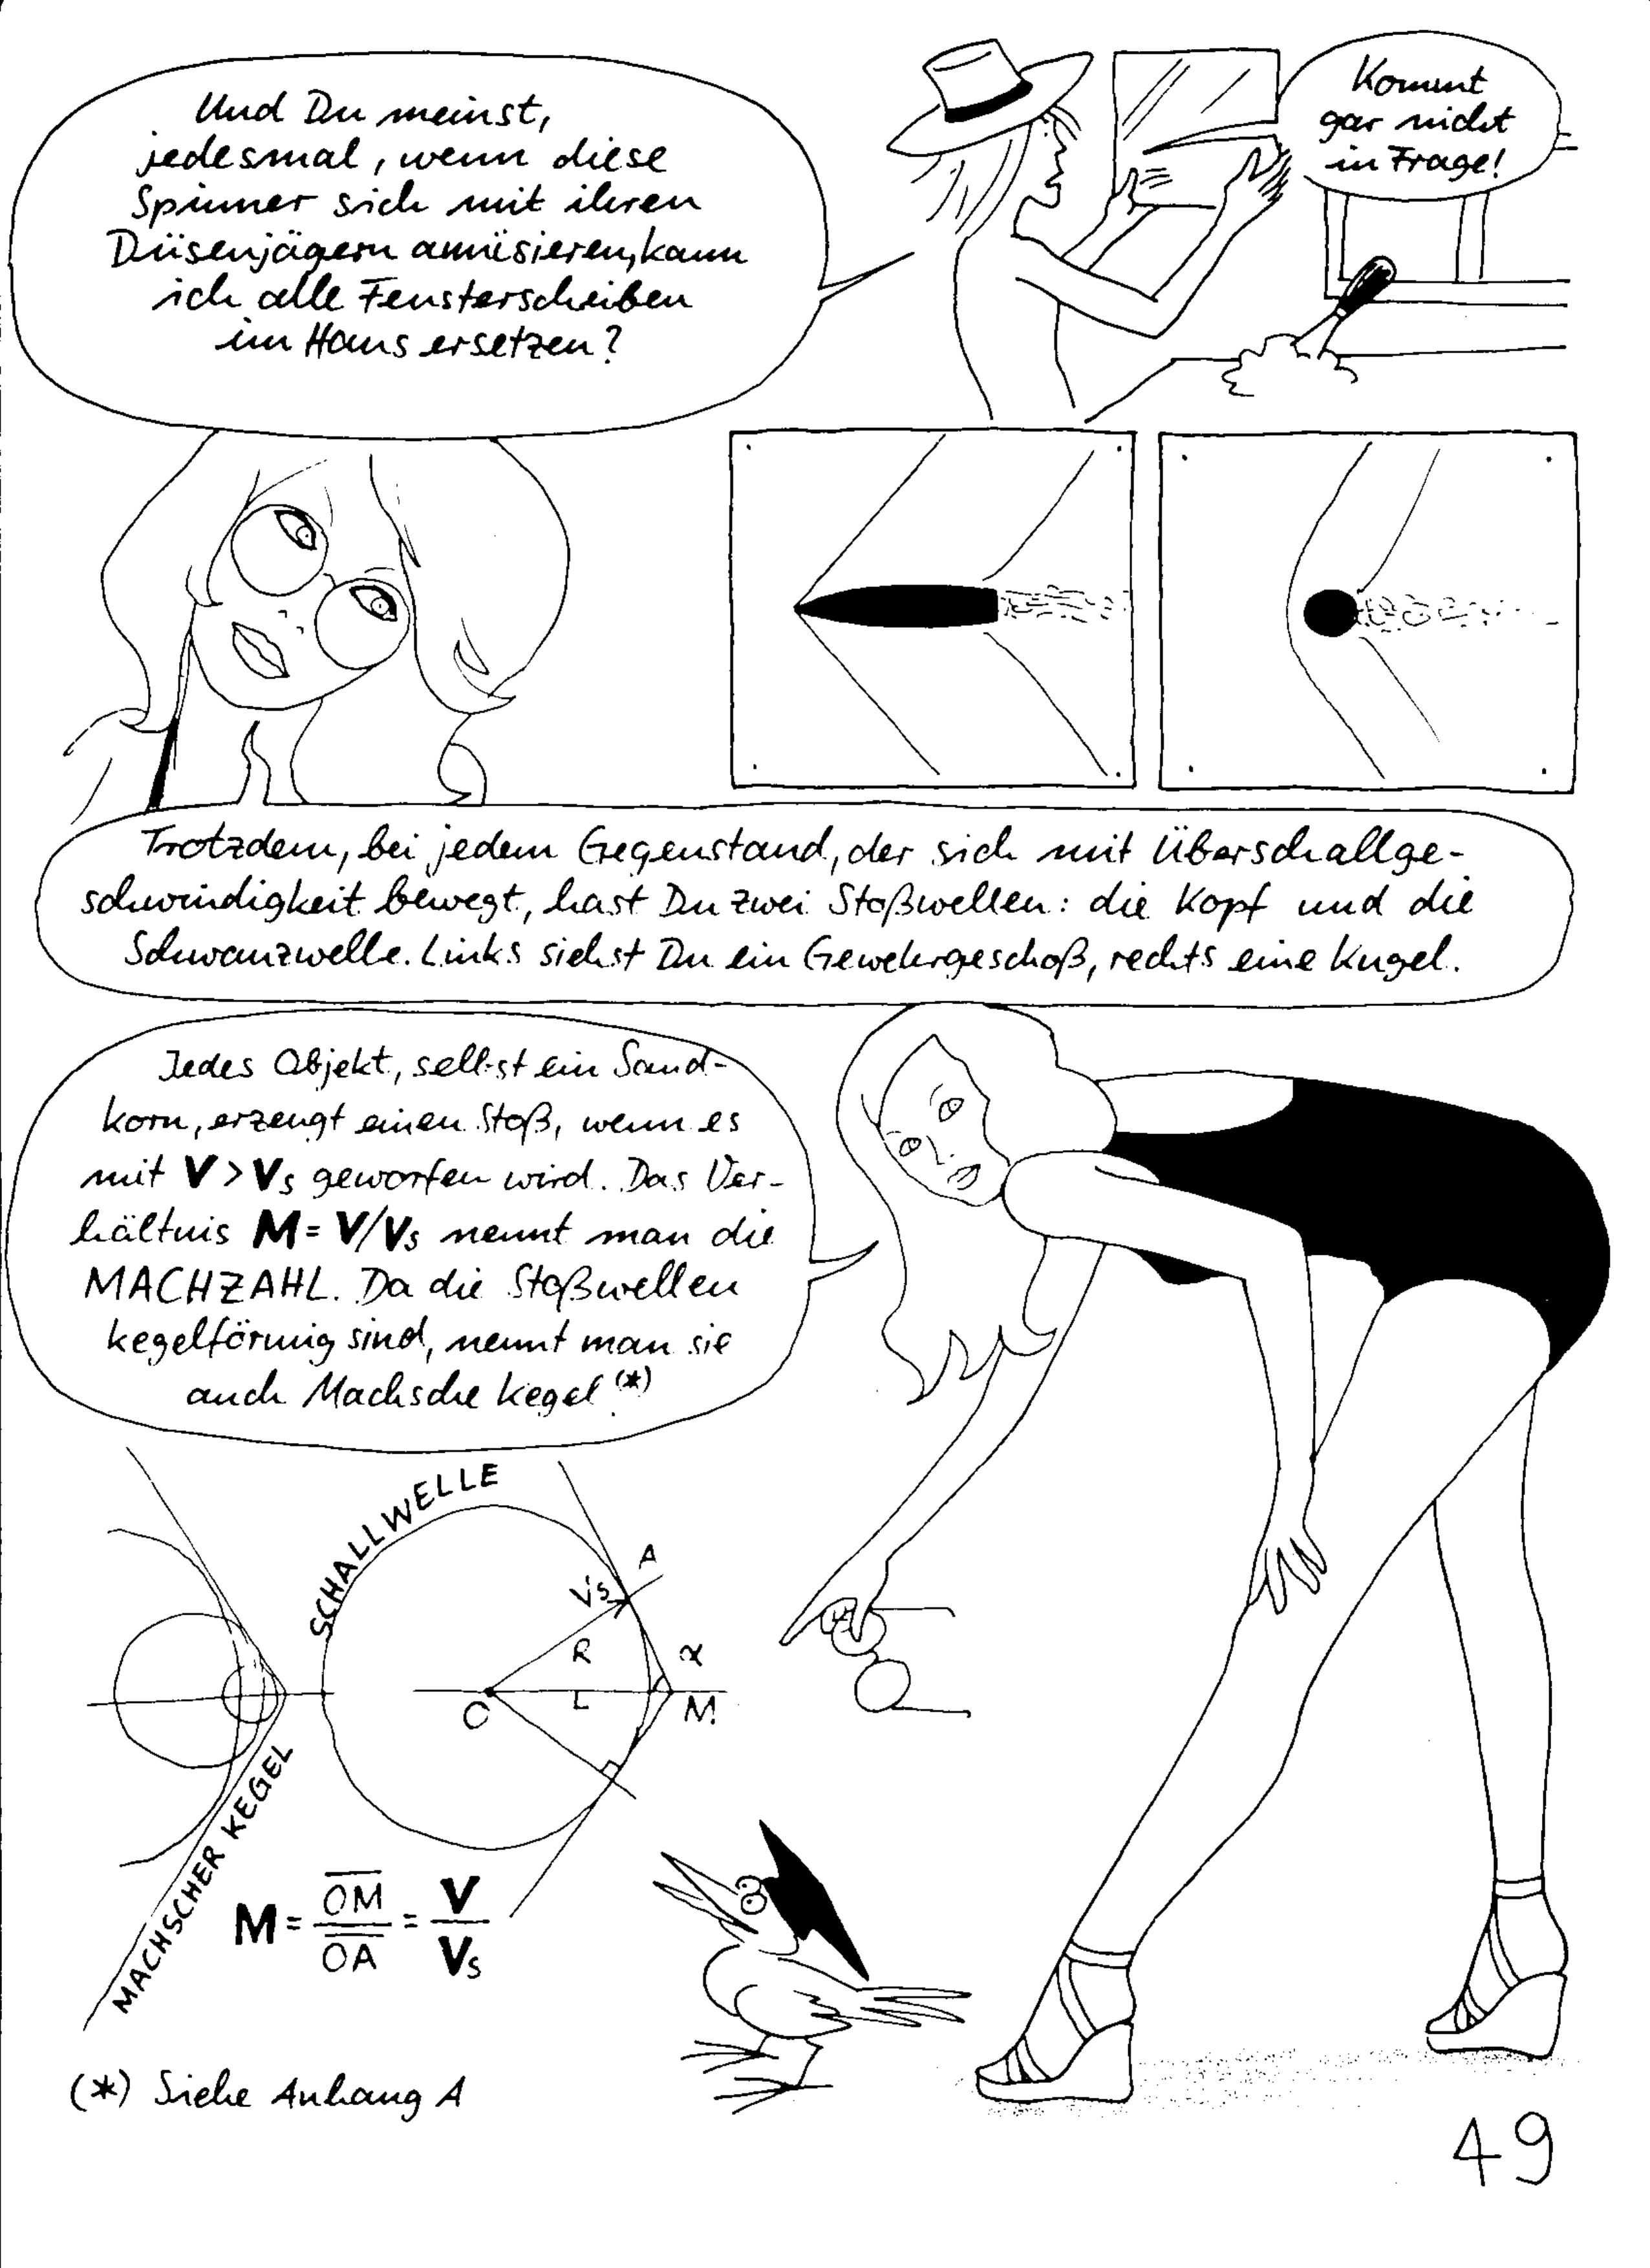 Und Du meinst,
jedesmal, wenn diese
Spinner sich mit ihren
Düsenjägern amüsieren, kann
ich alle Fensterscheiben
im Haus ersetzen?
Kommt
gar nicht
in Frage!
Trotzdem, bei jedem Gegenstand, der sich mit Überschallge-
schwindigkeit bewegt, hast Du zwei Stoßwellen: die Kopf und die
Schwanzwelle. Links siehst Du ein Gewehrgeschoß, rechts eine Kugel.
Jedes Objekt, selbst ein Sand-
korn, erzeugt einen Stoß, wenn es
mit V > Vs geworfen wird. Das Ver-
hältnis M = V/Vs nennt man die
MACHZAHL. Da die Stoßwellen
kegelförmig sind, nennt man sie
auch Machsche Kegel (*)
SCHALLWELLE
A
Vs
R
α
O
L
M
MACHSCHER KEGEL
M = OM/OA = V/Vs
(*) Siehe Anhang A
49